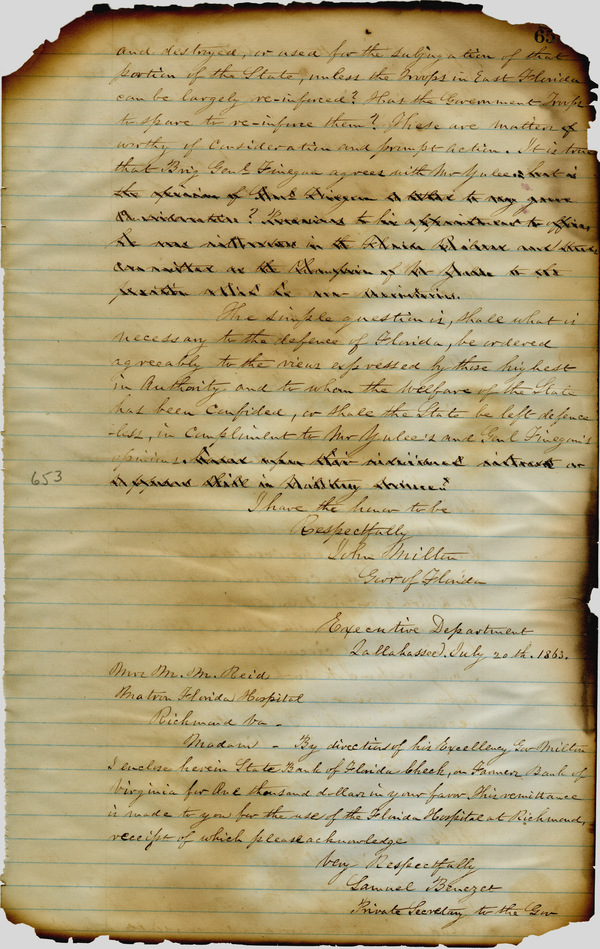 65
and destroyed, or used for the subjugation of that
portion of the State, unless the Troops in East Florida
can be largely re-inforced? Has the Government Troops
to spare to re-inforce them? These are matters of
worthy of consideration and prompt action. It is true
that Brig Genl. Finegan agrees with Mr Yulee, but is
the opinion of Genl Finegan entitled to any grave
Consideration? Previous to his appointment to office,
he was in the
as the Champion of to the
position
The simple question is, shall what is
necessary to the defence of Florida, be ordered
agreeably to the views expressed by those highest
in Authority and to whom the welfare of the State
has been confided, or shall the State be left defence
-less, in compliment to Mr Yulee's and Genl Finegan's
opinions, based upon their interest or
skill in Military Science?
653
I have the honor to be
Respectfully
John Milton
Govr of Florida
Executive Department
Tallahassee, July 20th. 1863.
Mrs M. M. Reid
Matron Florida Hospital
Richmond Va -
Madam - By direction of his Excellency Gov Milton
I enclose herein State Bank of Florida Check, on Farmers Bank of
Virginia for One thousand dollars in your favor. This remittance
is made to you for the use of the Florida Hospital at Richmond,
receipt of which please acknowledge
Very Respectfully
Samuel Benezet
Private Secretary to the Gov